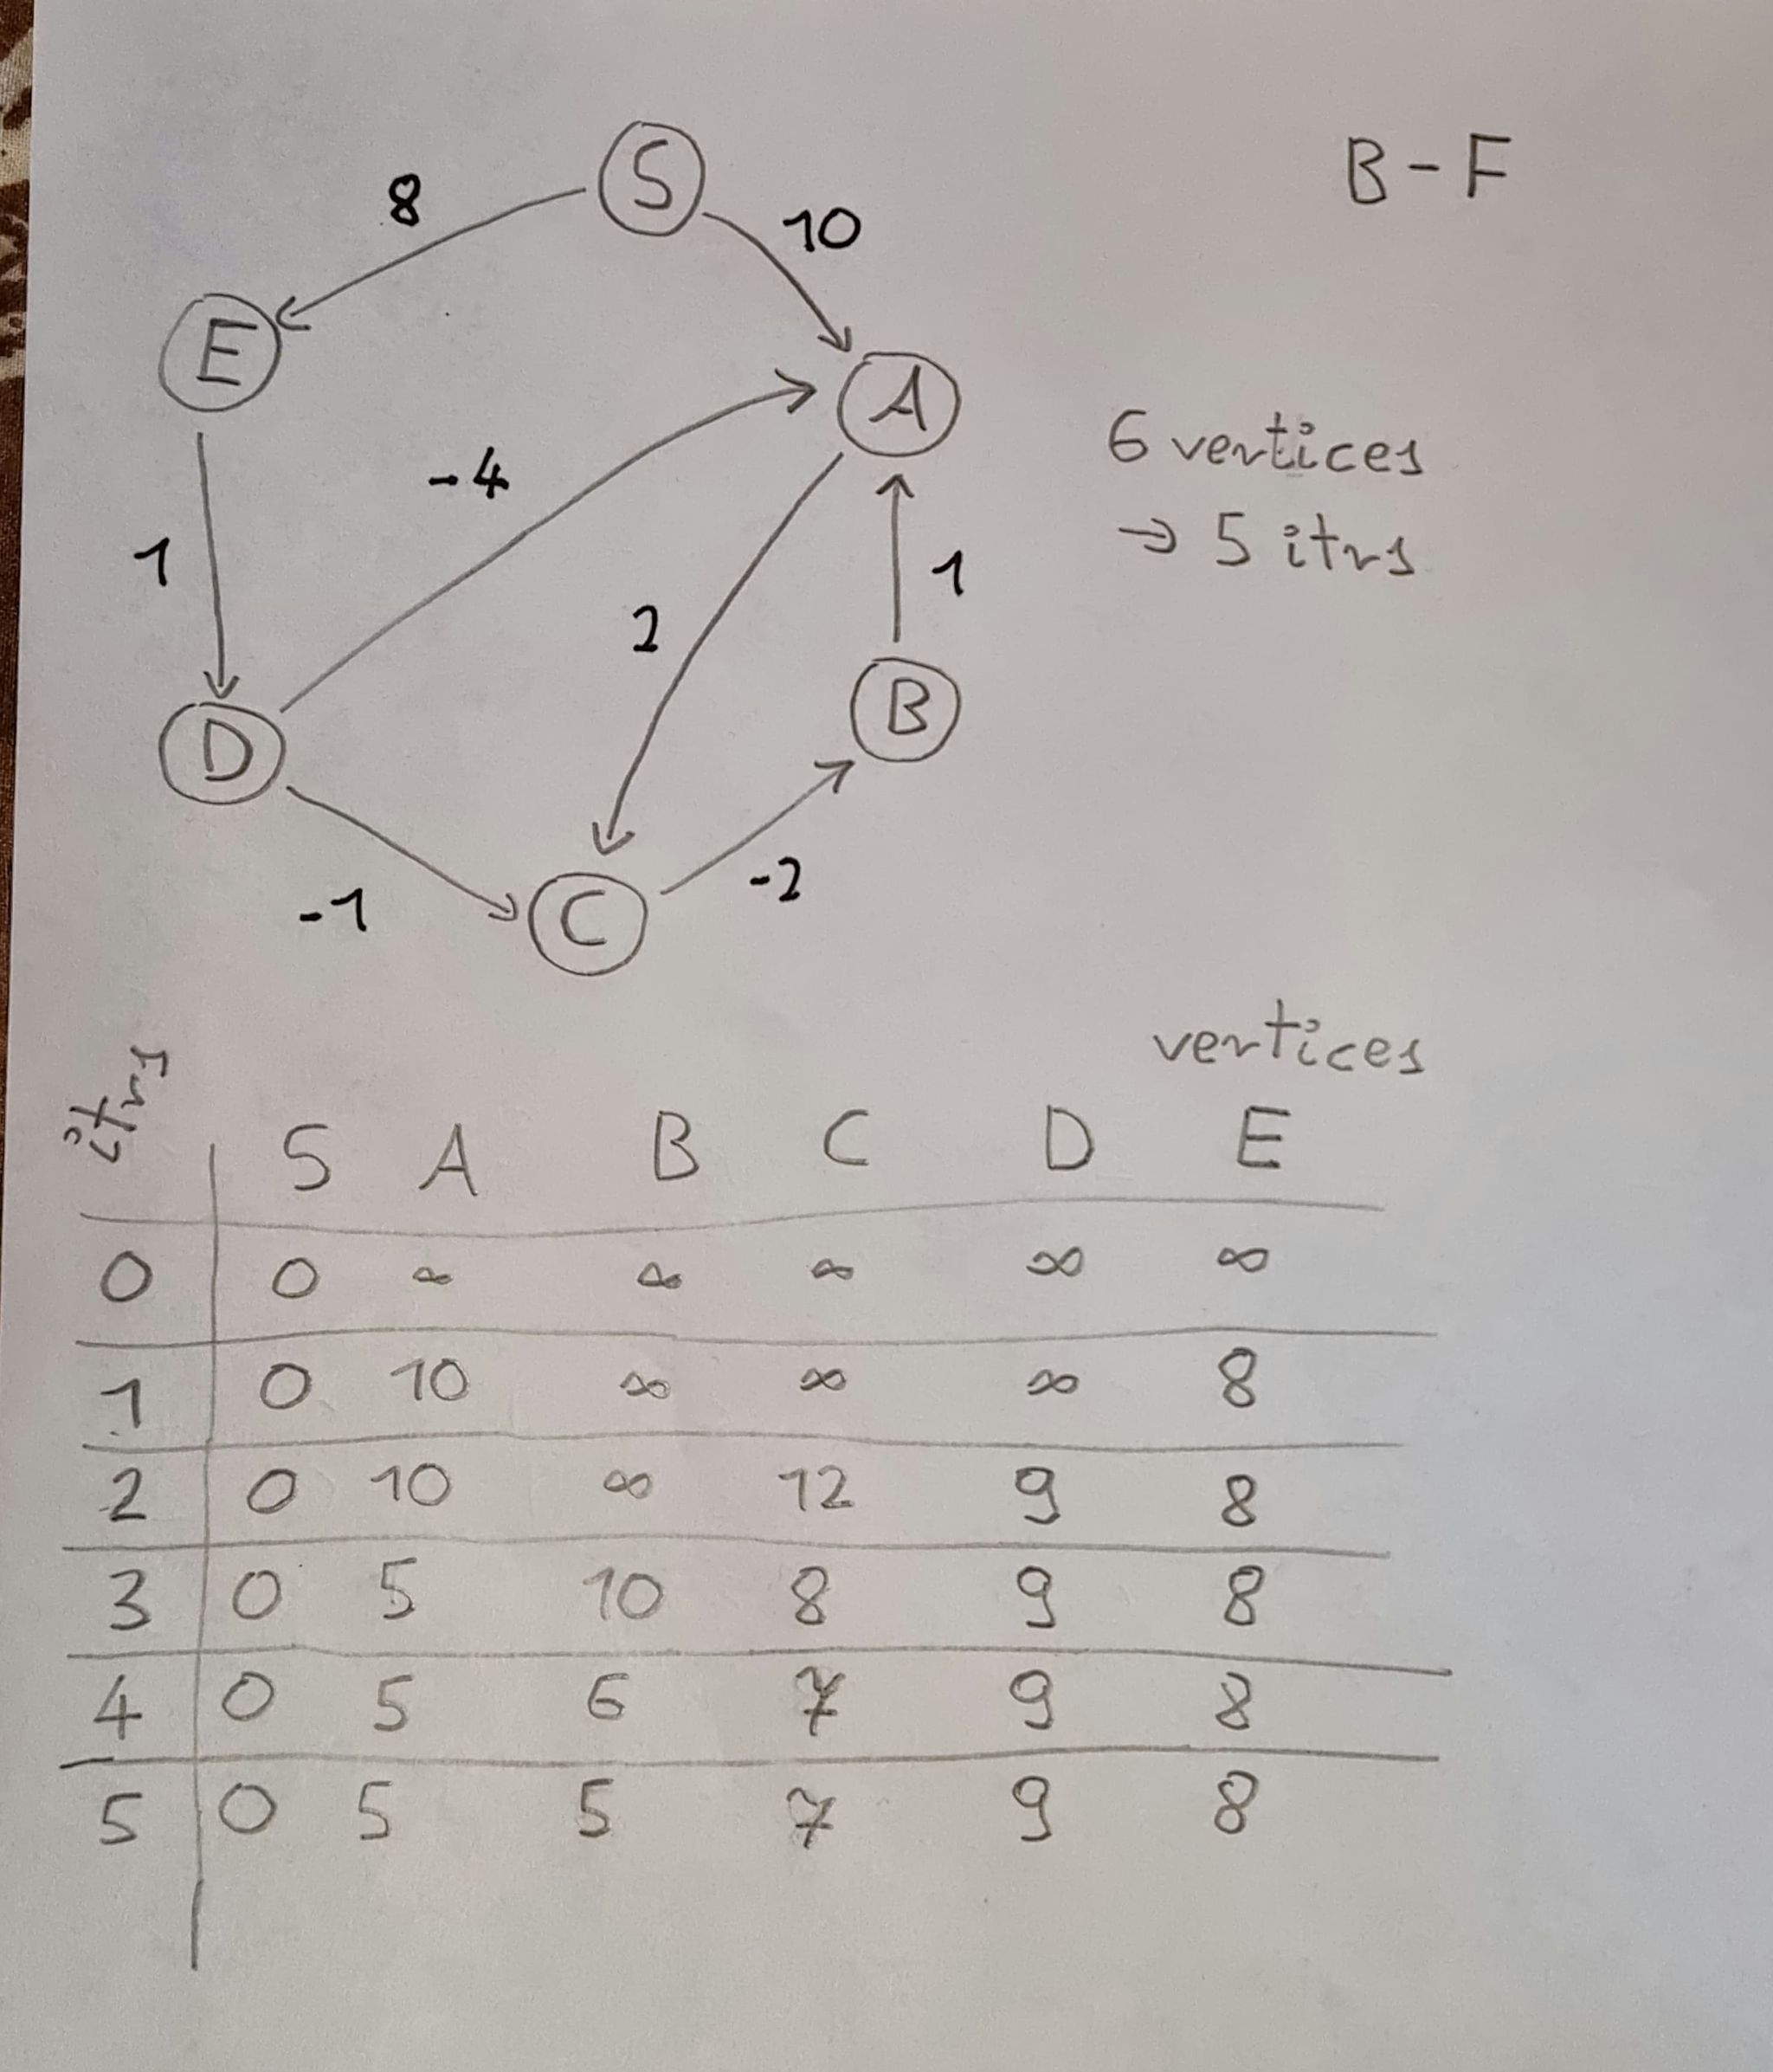 B-F
S
8
10
E
A
-4
6 vertices
→ 5 itrs
1
1
2
B
D
-2
-1
C
vertices
itrs
S A B C D E
0 0 ∞ ∞ ∞ ∞ ∞
1 0 10 ∞ ∞ ∞ 8
2 0 10 ∞ 12 9 8
3 0 5 10 8 9 8
4 0 5 6 7 9 8
5 0 5 5 7 9 8